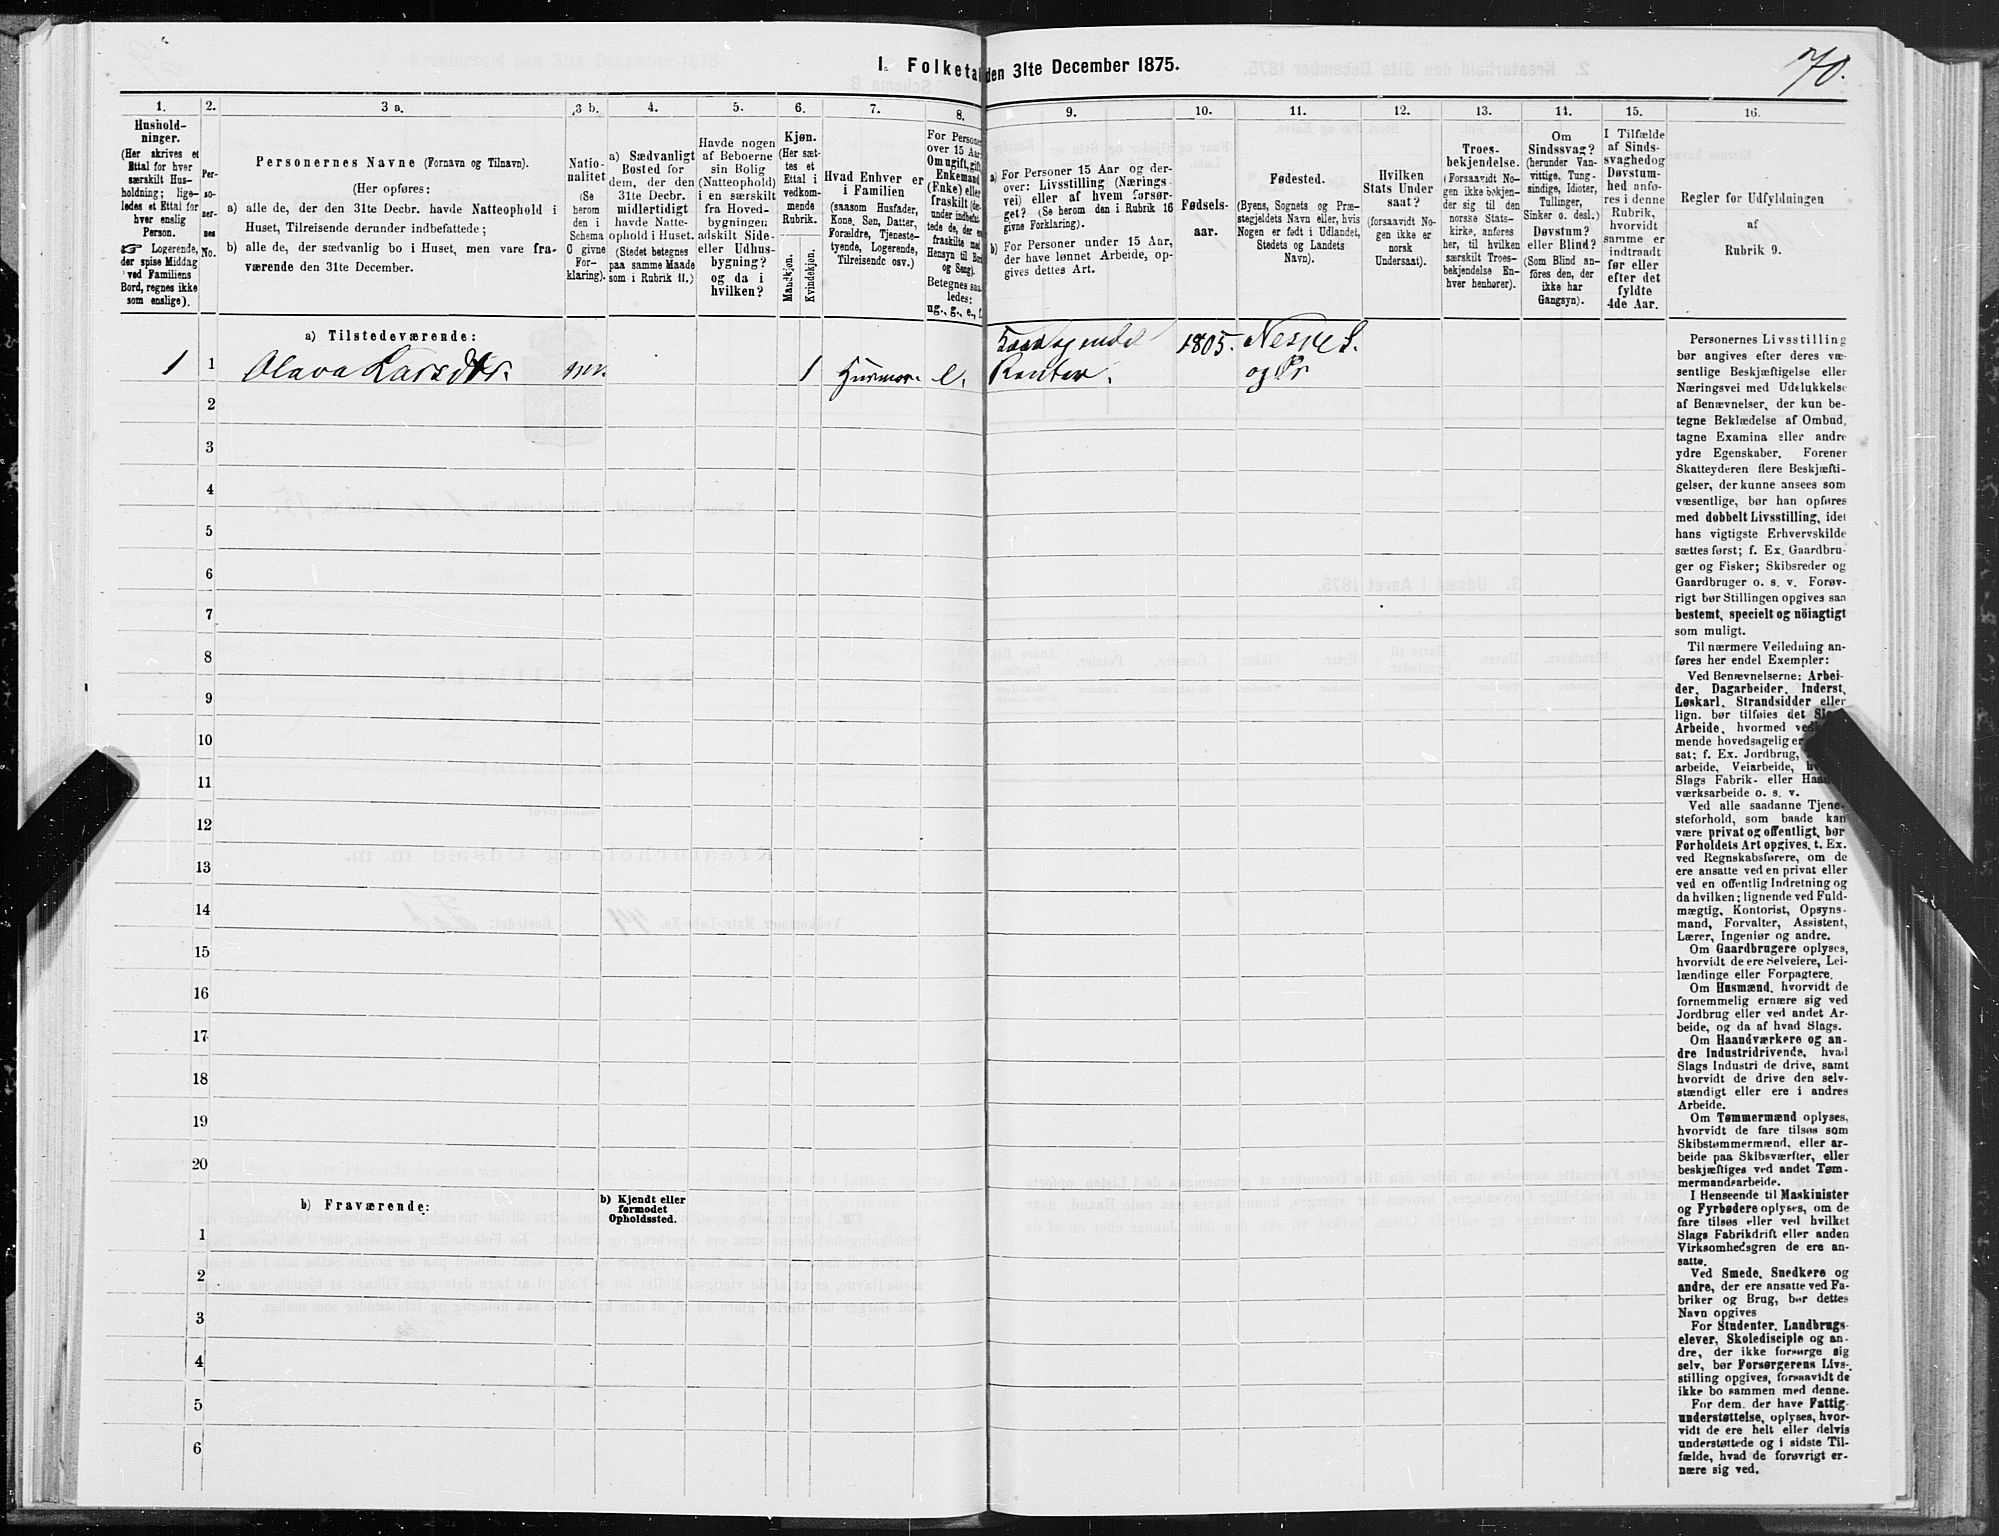 1. Folketal den 31te December 1875.
70.
1.
Hushold-
ninger.
(Her skrives et
Ettal for hver
særskilt Hus-
holdning; lige-
ledes et Ettal for
hver enslig
Person.
☞ Logerende,
der spise Middag
ved Familiens
Bord, regnes ikke
som enslige).
2.
Per-
so-
ner-
nes
No.
3 a.
Personernes Navne (Fornavn og Tilnavn).
(Her opføres:
a) alle de, der den 31te Decbr. havde Natteophold i
Huset, Tilreisende derunder indbefattede;
b) alle de, der sædvanlig bo i Huset, men vare fra-
værende den 31te December.
3 b.
Natio-
nalitet
(Se
herom
den i
Schema
O givne
For-
klaring).
4.
a) Sædvanligt
Bosted for
dem, der den
31te Decbr.
midlertidigt
havde Natte-
ophold i Huset.
(Stedet betegnes
paa samme Maade
som i Rubrik 11.)
5.
Havde nogen
af Beboerne
sin Bolig
(Natteophold)
i en særskilt
fra Hoved-
bygningen
adskilt Side-
eller Udhus-
bygning?
og da i
hvilken?
6.
Kjøn.
(Her sæt-
tes et
Ettal i
vedkom-
mende
Rubrik.
Mandkjøn.
Kvindekjøn.
7.
Hvad Enhver er
i Familien
(saasom Husfader,
Kone, Søn, Datter,
Forældre, Tjeneste-
tyende, Logerende,
Tilreisende osv.)
8.
For Personer
over 15 Aar:
Om ugift, gift,
Enkemand
(Enke) eller
fraskilt
Hensyn til Bord
og Seng).
Betegnes saa-
ledes:
ug., g., e., f.
9.
a) For Personer 15 Aar og der-
over: Livsstilling (Nærings-
vei) eller af hvem forsør-
get? (Se herom den i Rubrik 16
givne Forklaring).
b) For Personer under 15 Aar,
der have lønnet Arbeide, op-
gives dettes Art.
10.
Fødsels-
aar.
11.
Fødested.
(Byens, Sognets og Præ-
stegjeldets Navn eller, hvis
Nogen er født i Udlandet,
Stedets og Landets
Navn).
12.
Hvilken
Stats Under
saat?
(forsaavidt No-
gen ikke er
norsk
Undersaat).
13.
Troes-
bekjendelse.
(Forsaavidt No-
gen ikke bekjen-
der sig til den
norske Stats-
kirke, anføres
her, til hvilken
særskilt Troes-
bekjendelse En-
hver henhører).
14.
Om
Sindssvag?
(herunder Van-
vittige, Tung-
sindige, Idioter,
Tullinger,
Sinker o. desl.)
Døvstum?
eller Blind?
(Som Blind an-
føres den, der
ikke har
Gangsyn).
15.
I Tilfælde
af Sinds-
svaghedog
Døvstum-
hed anfø-
res i denne
Rubrik,
hvorvidt
samme er
indtraadt
før eller
efter det
fyldte
4de Aar.
16.
Regler for Udfyldningen
af
Rubrik 9.
a) Tilstedeværende:
1 1 Olava Larsdtr. 1 Husmor. e. 1805. Nesne S.
og Pr
2
3
4
5
6
7
8
9
10
11
12
13
14
15
16
17
18
19
20
b) Fraværende:
b) Kjendt eller
formodet
Opholdssted.
1
2
3
4
5
6
Personernes Livsstilling
bør angives efter deres væ-
sentlige Beskjæftigelse eller
Næringsvei med Udelukkelse
af Benævnelser, der kun be-
tegne Beklædelse af Ombud,
tagne Examina eller andre
ydre Egenskaber. Forener
Skatteyderen flere Beskjæfti-
gelser, der kunne ansees som
væsentlige, bør han opføres
med dobbelt Livsstilling, idet
hans vigtigste Erhvervskilde
sættes først; f. Ex. Gaardbru-
ger og Fisker; Skibsreder og
Gaardbruger o. s. v. Forøv-
rigt bør Stillingen opgives saa
bestemt, specielt og nöiagtigt
som muligt.
Til nærmere Veiledning an-
føres her endel Exempler:
Ved Benævnelserne: Arbei-
der, Dagarbeider, Inderst,
Løskarl, Strandsidder eller
lign. bør tilføies det Slags
Arbeide, hvormed vedkom-
mende hovedsagelig er
sat; f. Ex. Jordbrug,
arbeide, Veiarbeide,
Slags Fabrik- eller Haand-
værksarbeide o. s. v.
Ved alle saadanne Tjene-
steforhold, som baade kan
være privat og offentligt, bør
Forholdets Art opgives, t. Ex.
ved Regnskabsførere, om de
ere ansatte ved en privat eller
ved en offentlig Indretning og
da hvilken; lignende ved Fuld-
mægtig, Kontorist, Opsyns-
mand, Forvalter, Assistent,
Lærer, Ingeniør og andre.
Om Gaardbrugere oplyses,
hvorvidt de ere Selveiere, Lei-
lændinge eller Forpagtere.
Om Husmænd, hvorvidt de
fornemmelig ernære sig ved
Jordbrug eller ved andet Ar-
beide, og da af hvad Slags.
Om Haandværkere og an-
dre Industridrivende, hvad
Slags Industri de drive, samt
hvorvidt de drive den selv-
stændigt eller ere i andres
Arbeide.
Om Tømmermænd oplyses,
hvorvidt de fare tilsøs som
Skibstømmermænd, eller ar-
beide paa Skibsværfter, eller
beskjæftiges ved andet Tøm-
mermandsarbeide.
I Henseende til Maskinister
og Fyrbødere oplyses, om de
fare tilsøs eller ved hvilket
Slags Fabrikdrift eller anden
Virksomhedsgren de ere an-
satte.
Ved Smede, Snedkere og
andre, der ere ansatte ved Fa-
briker og Brug, bør dettes
Navn opgives
For Studenter, Landbrugs-
elever, Skoledisciple og an-
dre, der ikke forsørge sig
selv, bør Forsørgerens Livs-
stilling opgives, forsaavidt de
ikke bo sammen med denne.
For dem, der have Fattig-
understøttelse, oplyses, hvor-
vidt de ere helt eller delvis
understøttede og i sidste Til-
fælde, hvad de forøvrigt er-
nære sig ved.